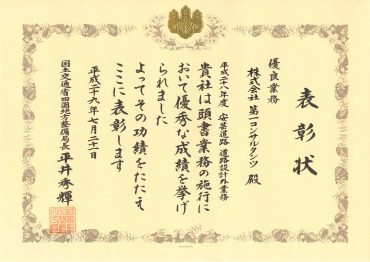 表彰状
優良業務
株式会社 第一コンサルタンツ 殿
平成二十八年度 安芸道路 道路設計外業務
貴社は頭書業務の施行に
おいて優秀な成績を挙げ
られました
よってその功績をたたえ
ここに表彰します
平成二十九年七月二十一日
国土交通省四国地方整備局長 平井秀輝